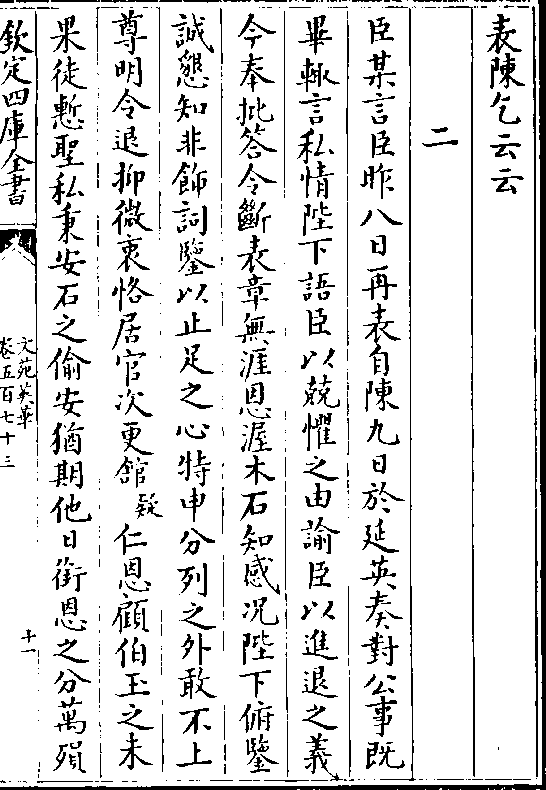 表陳乞云云
二
臣某言臣昨八日再表自陳九日於延英奏對公事既
畢輙言私情陛下語臣以兢懼之由諭臣以進退之義
今奉批答令斷表章無涯恩渥木石知感况陛下俯鑒
誠懇知非飾詞鑒以止足之心特申分列之外敢不上
尊明令退抑微衷恪居官次更館疑仁恩顧伯玉之未
果徒慙聖私秉安石之偷安猶期他日銜恩之分萬殞
欽定四庫全書
文苑英華
卷五百七十三
十一